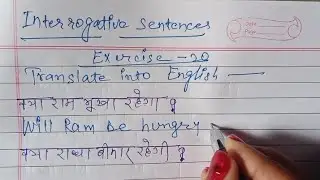 Interrogative Sentences
Exercise - 20
Translate into English —
क्या राम भूखा रहेगा ?
Will Ram be hungry
क्या राधा बीमार रहेगी ?